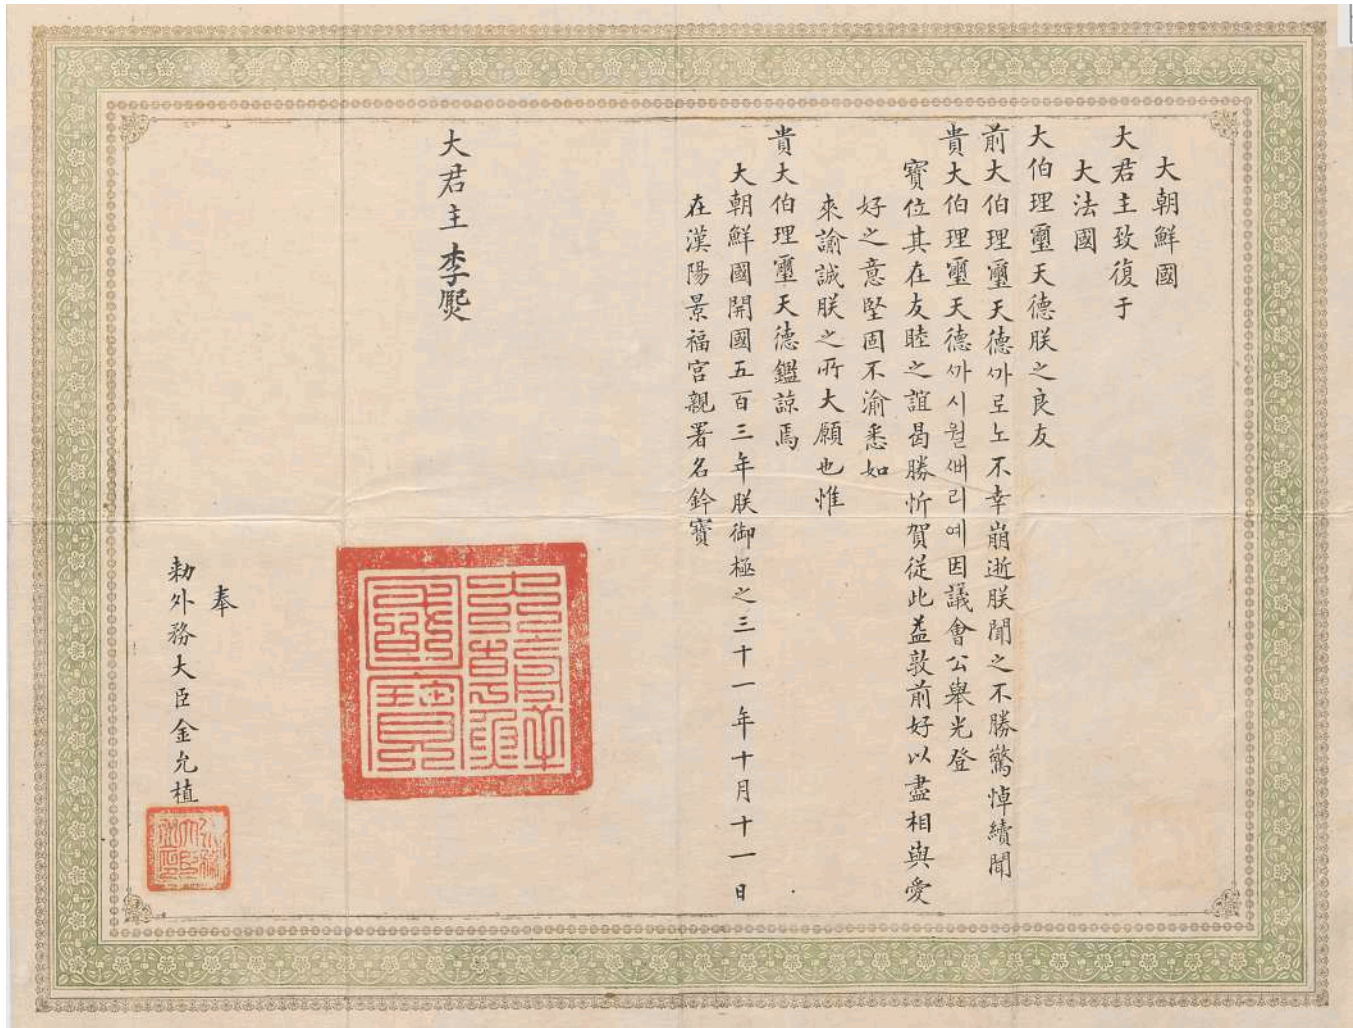 大朝鮮國
大君主致復于
大法國
大伯理璽天德朕之良友
前大伯理璽天德까로노不幸崩逝朕聞之不勝驚悼續聞
貴大伯理璽天德까시월쎄리예因議會公舉光登
寶位其在友睦之誼曷勝忻賀從此益敦前好以盡相與愛
好之意堅固不渝悉如
來諭誠朕之所大願也惟
貴大伯理璽天德鑑諒焉
大朝鮮國開國五百三年朕御極之三十一年十月十一日
在漢陽景福宮親署名鈐寶
大君主 李㷩
大朝鮮國寶
奉
勅外務大臣金允植
外務大臣之印